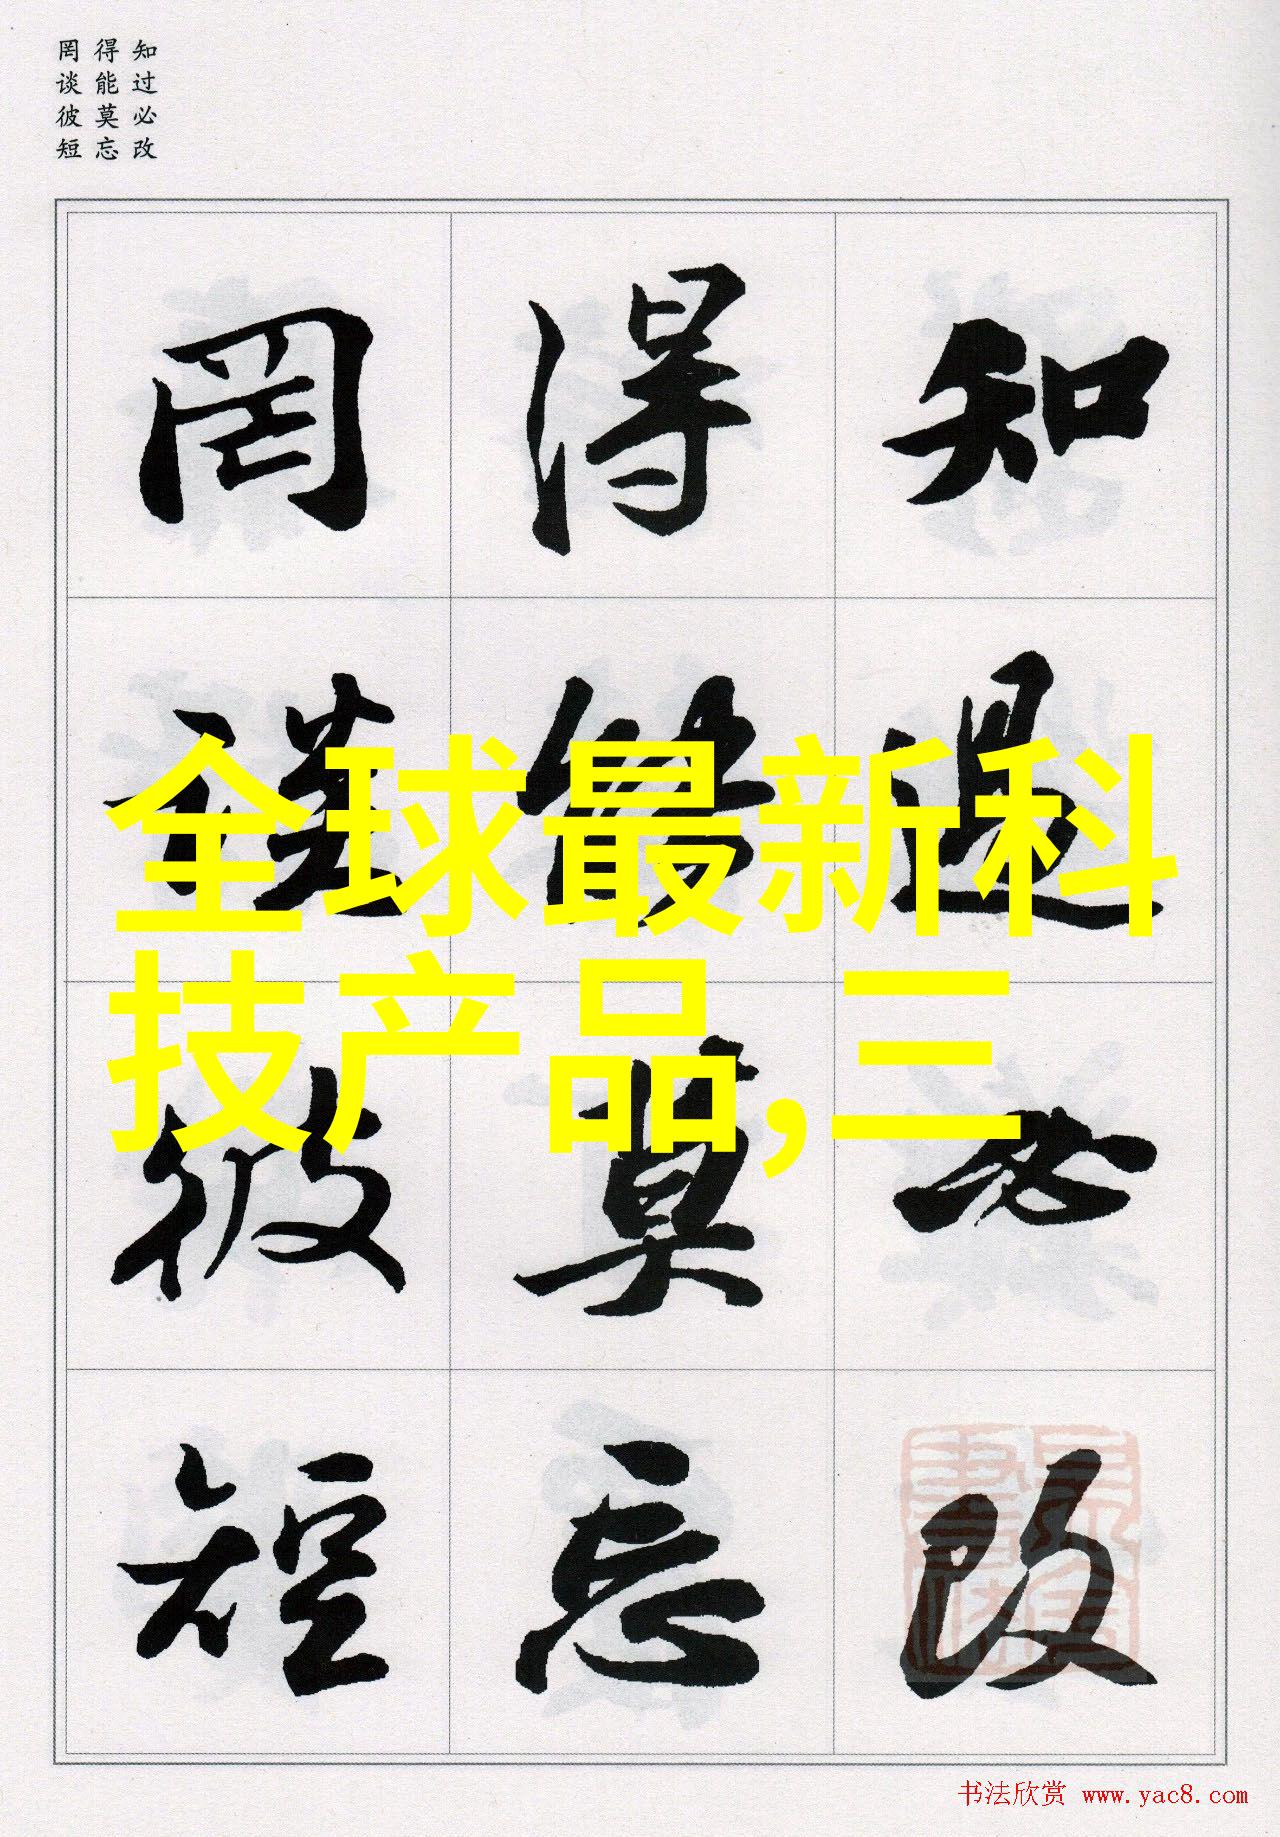 知过必改
得能莫忘
罔谈彼短
知過必改
得能莫忘
罔談彼短
全球最新科
技产品,三
书法欣赏 www.yac8.com